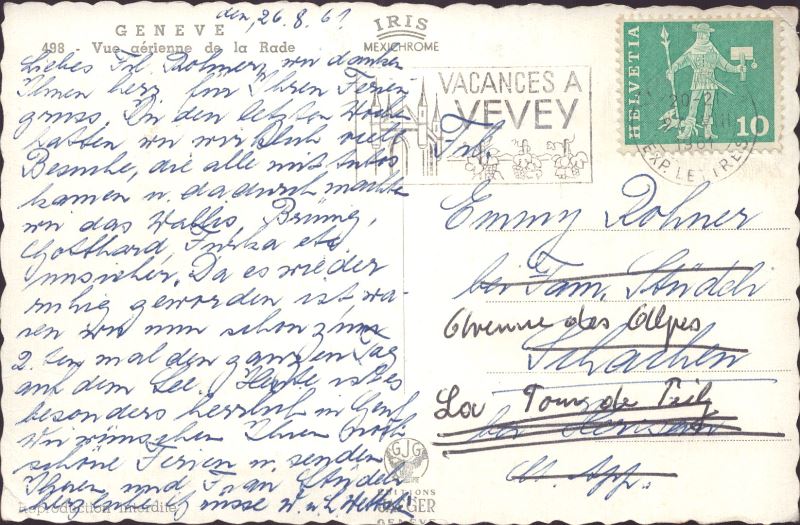 GENEVE
498 - Vue aérienne de la Rade
den, 26.8.61
IRIS
MEXICHROME
Liebes Frl. Rohner, wir danken
Ihnen herz. für Ihren Ferien-
gruss. In den letzten Woch
hatten wir wirklich viele
Besuche, die alle mit Autos
kamen u. dadurch machten
wir das Wallis, Brünig,
Gotthard, Furka etc.
unsicher. Da es wieder
ruhig geworden ist, wa-
ren wir nun schon zum
2. mal den ganzen Tag
auf dem See. Heute ist es
besonders herrlich in Genf.
Wir wünschen Ihnen noch
schöne Ferien u. senden
Ihnen und Frau Stüdeli
herzliche Grüsse W. u. L.
Reproduction interdite
VACANCES A
VEVEY
HELVETIA
10
20-21
1961
EXP. LETTRES
Frl.
Emmy Rohner
bei Fam. Stüdeli
Avenue des Alpes
Schachen
La Tour de Peilz
bei Herisau
Kt. App.
GJG
EDITIONS
JAEGER
GENEVE